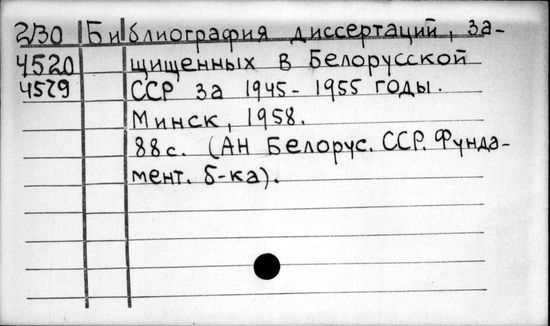 2/30 Библиография диссертаций, за-
4520 щищенных в Белорусской
4579 ССР за 1945-1955 годы.
Минск, 1958.
88с. (АН Белорус. ССР. Фунда-
мент. б-ка).